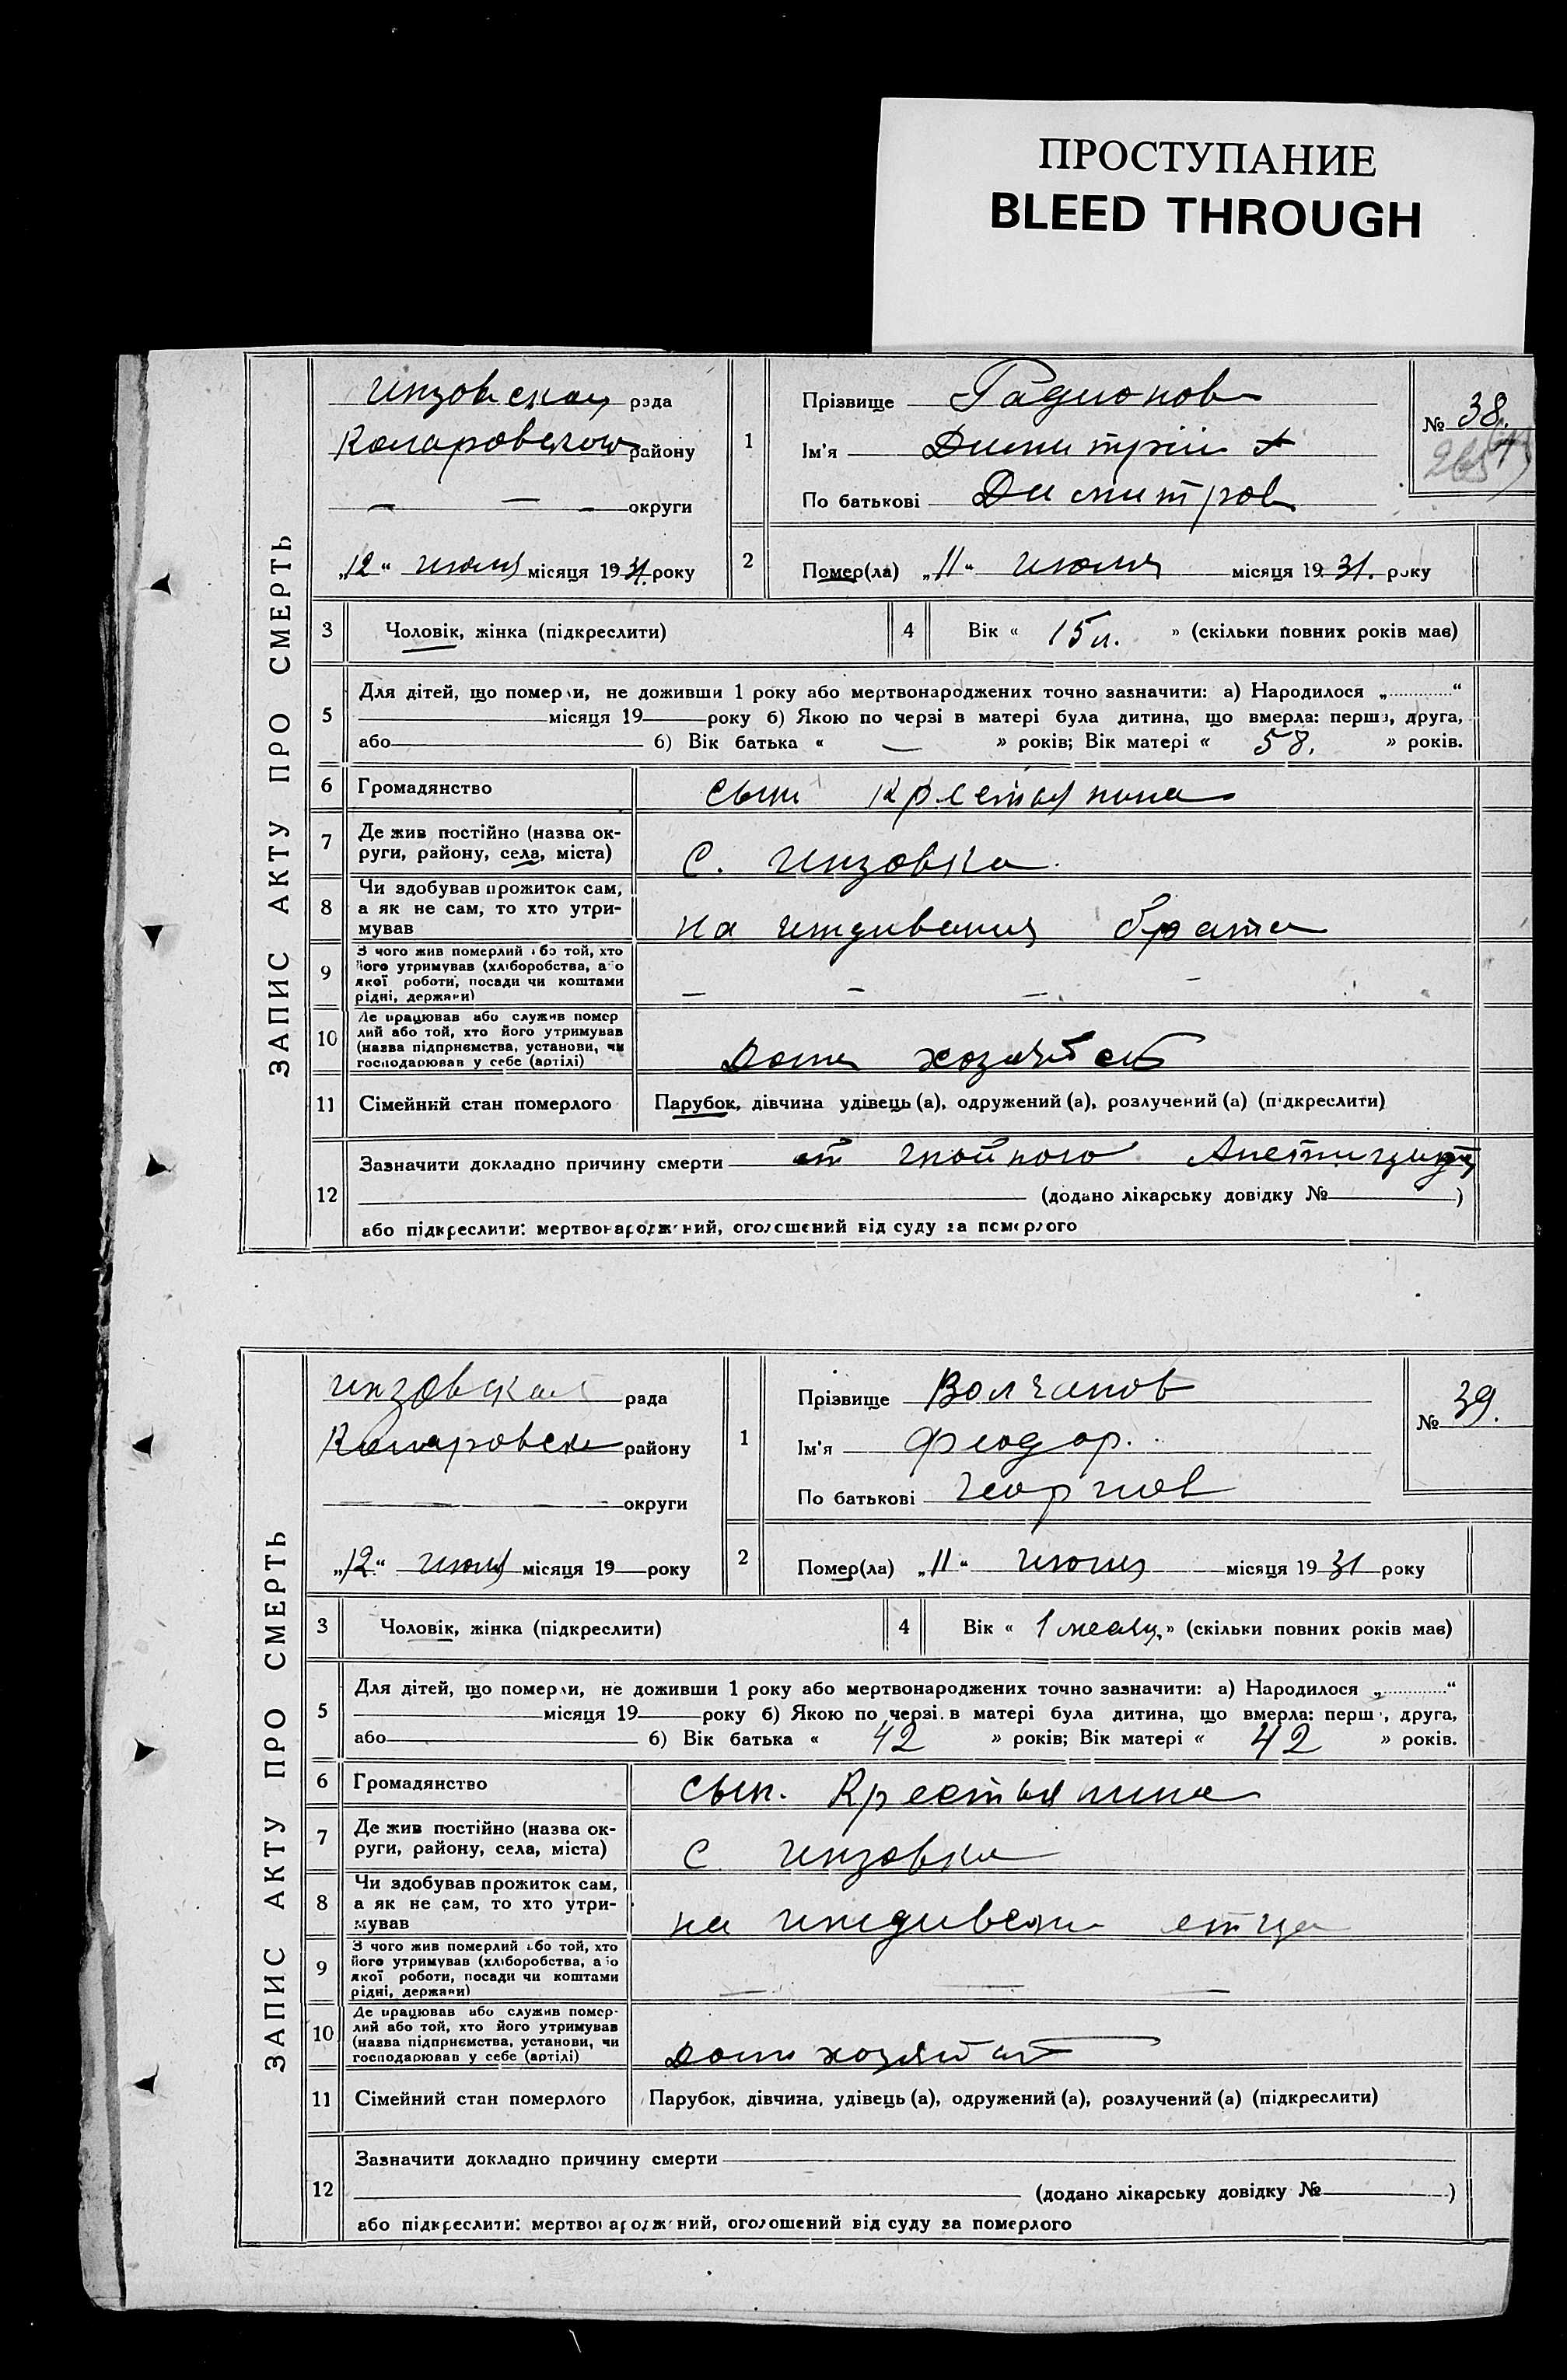 ПРОСТУПАНИЕ
BLEED THROUGH
ЗАПИС АКТУ ПРО СМЕРТЬ
Инзовская рада
Коларовского району
— — — округи
„12“ июля місяця 1931 року
1
Прізвище Радионов
Ім'я Димитрий
По батькові Димитров
№ 38.
2
Помер(ла) „11“ июля місяця 1931. року
3 Чоловік, жінка (підкреслити)
4 Вік « 15 л. » (скільки повних років має)
5
Для дітей, що померли, не доживши 1 року або мертвонароджених точно зазначити: а) Народилося „............“
місяця 19 року б) Якою по черзі в матері була дитина, що вмерла: перша, друга,
або б) Вік батька « — » років; Вік матері « 58. » років.
6 Громадянство сын крестьянина
7 Де жив постійно (назва ок-
руги, району, села, міста) С. Инзовка
8 Чи здобував прожиток сам,
а як не сам, то хто утри-
мував на иждивения брата
9 З чого жив померлий або той, хто
його утримував (хліборобства, або
якої роботи, посади чи коштами
рідні, держави) — — — —
10 Де працював або служив помер
лий або той, хто його утримував
(назва підприємства, установи, чи
господарював у себе (артілі) Дом хозяйст
11 Сімейний стан померлого Парубок, дівчина удівець (а), одружений (а), розлучений (а) (підкреслити)
12
Зазначити докладно причину смерти от гнойного
(додано лікарську довідку № )
або підкреслити: мертвонароджений, оголошений від суду за померлого
ЗАПИС АКТУ ПРО СМЕРТЬ
Инзовская рада
Коларовск району
— — — округи
„12“ июля місяця 19 року
1
Прізвище Волчанов
Ім'я Феодор.
По батькові Георгиев
№ 39.
2
Помер(ла) „11“ июля місяця 1931 року
3 Чоловік, жінка (підкреслити)
4 Вік « 1 месяц. » (скільки повних років має)
5
Для дітей, що померли, не доживши 1 року або мертвонароджених точно зазначити: а) Народилося „............“
місяця 19 року б) Якою по черзі в матері була дитина, що вмерла: перша, друга,
або б) Вік батька « 42 » років; Вік матері « 42 » років.
6 Громадянство сын. Крестьянина
7 Де жив постійно (назва ок-
руги, району, села, міста) С Инзовка
8 Чи здобував прожиток сам,
а як не сам, то хто утри-
мував на иждивени отца
9 З чого жив померлий або той, хто
його утримував (хліборобства, або
якої роботи, посади чи коштами
рідні, держави) — — —
10 Де працював або служив помер-
лий або той, хто його утримував
(назва підприємства, установи, чи
господарював у себе (артілі) Дом хозяйст
11 Сімейний стан померлого Парубок, дівчина, удівець (а), одружений (а), розлучений (а) (підкреслити)
12
Зазначити докладно причину смерти
(додано лікарську довідку № )
або підкреслити: мертвонароджений, оголошений від суду за померлого